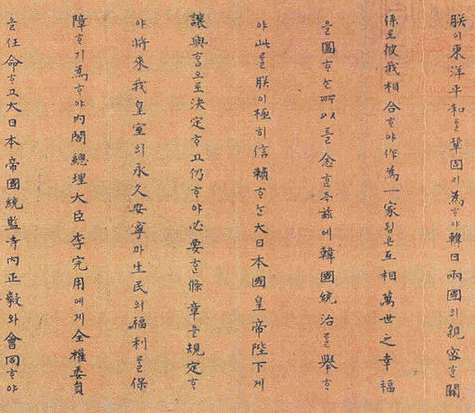 朕이東洋平和를鞏固히爲ᄒᆞ야韓日兩國의親密ᄒᆞᆫ關
係로彼我相合ᄒᆞ야作爲一家됨은互相萬世之幸福
을圖ᄒᆞᄂᆞᆫ所以를念ᄒᆞᆫ즉玆에韓國統治를擧ᄒᆞ
야此를朕이極히信賴ᄒᆞᄂᆞᆫ大日本國皇帝陛下게
讓與ᄒᆞᆷ으로決定ᄒᆞ고仍ᄒᆞ야必要ᄒᆞᆫ條章을規定ᄒᆞ
야將來我皇室의永久安寧과生民의福利를保
障ᄒᆞ기爲ᄒᆞ야內閣總理大臣李完用에게全權委員
을任命ᄒᆞ고大日本帝國統監寺內正毅와會同ᄒᆞ야